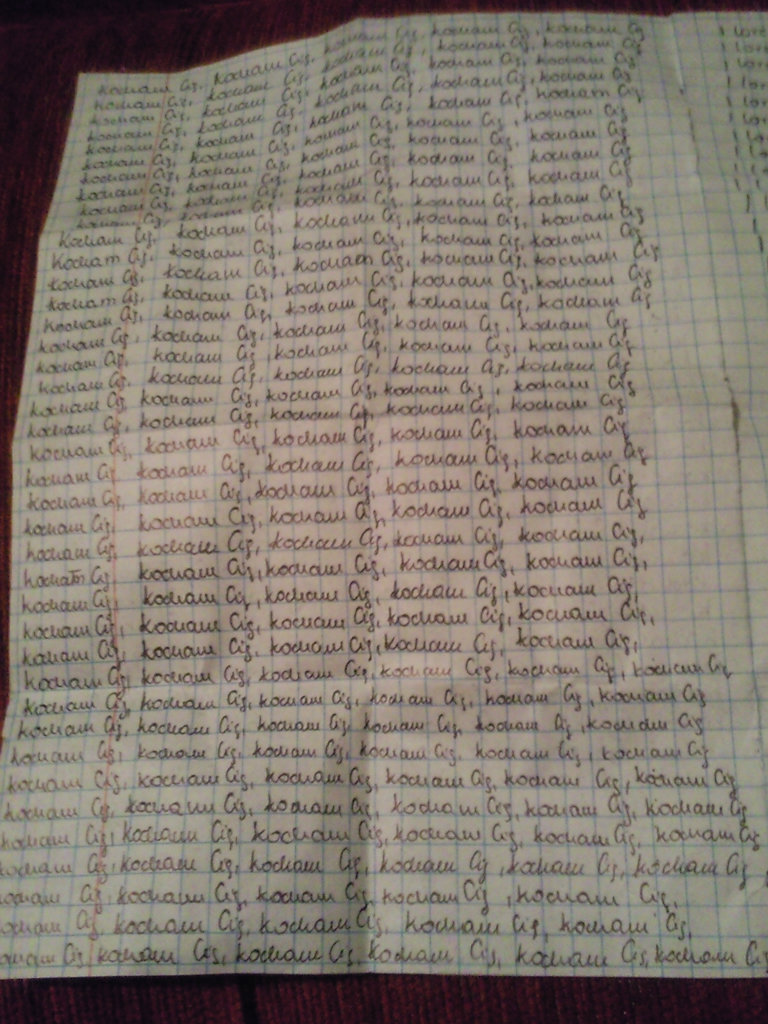 kocham Cię, kocham Cię, kocham Cię, kocham Cię, kocham Cię
kocham Cię, kocham Cię, kocham Cię, kocham Cię, kocham Cię
kocham Cię, kocham Cię, kocham Cię, kocham Cię, kocham Cię
kocham Cię, kocham Cię, kocham Cię, kocham Cię, kocham Cię
kocham Cię, kocham Cię, kocham Cię, kocham Cię, kocham Cię
kocham Cię, kocham Cię, kocham Cię, kocham Cię, kocham Cię
kocham Cię, kocham Cię, kocham Cię, kocham Cię, kocham Cię
kocham Cię, kocham Cię, kocham Cię, kocham Cię, kocham Cię
kocham Cię, kocham Cię, kocham Cię, kocham Cię, kocham Cię
kocham Cię, kocham Cię, kocham Cię, kocham Cię, kocham Cię
Kocham Cię, kocham Cię, kocham Cię, kocham Cię, kocham Cię
Kocham Cię, kocham Cię, kocham Cię, kocham Cię, kocham Cię
kocham Cię, kocham Cię, kocham Cię, kocham Cię, kocham Cię
kocham Cię, kocham Cię, kocham Cię, kocham Cię, kocham Cię
kocham Cię, kocham Cię, kocham Cię, kocham Cię, kocham Cię
kocham Cię, kocham Cię, kocham Cię, kocham Cię, kocham Cię
kocham Cię, kocham Cię, kocham Cię, kocham Cię, kocham Cię
kocham Cię, kocham Cię, kocham Cię, kocham Cię, kocham Cię
kocham Cię, kocham Cię, kocham Cię, kocham Cię, kocham Cię
kocham Cię, kocham Cię, kocham Cię, kocham Cię, kocham Cię
kocham Cię, kocham Cię, kocham Cię, kocham Cię, kocham Cię
kocham Cię, kocham Cię, kocham Cię, kocham Cię, kocham Cię
kocham Cię, kocham Cię, kocham Cię, kocham Cię, kocham Cię
kocham Cię, kocham Cię, kocham Cię, kocham Cię, kocham Cię
kocham Cię, kocham Cię, kocham Cię, kocham Cię, kocham Cię,
kocham Cię, kocham Cię, kocham Cię, kocham Cię, kocham Cię,
kocham Cię, kocham Cię, kocham Cię, kocham Cię, kocham Cię,
kocham Cię, kocham Cię, kocham Cię, kocham Cię, kocham Cię,
kocham Cię, kocham Cię, kocham Cię, kocham Cię, kocham Cię,
kocham Cię, kocham Cię, kocham Cię, kocham Cię, kocham Cię, kocham Cię
kocham Cię, kocham Cię, kocham Cię, kocham Cię, kocham Cię, kocham Cię
kocham Cię, kocham Cię, kocham Cię, kocham Cię, kocham Cię, kocham Cię
kocham Cię, kocham Cię, kocham Cię, kocham Cię, kocham Cię, kocham Cię
kocham Cię, kocham Cię, kocham Cię, kocham Cię, kocham Cię, kocham Cię
kocham Cię, kocham Cię, kocham Cię, kocham Cię, kocham Cię, kocham Cię
kocham Cię, kocham Cię, kocham Cię, kocham Cię, kocham Cię, kocham Cię
kocham Cię, kocham Cię, kocham Cię, kocham Cię, kocham Cię, kocham Cię,
kocham Cię, kocham Cię, kocham Cię, kocham Cię, kocham Cię,
kocham Cię, kocham Cię, kocham Cię, kocham Cię, kocham Cię,
kocham Cię, kocham Cię, kocham Cię, kocham Cię, kocham Cię, kocham Cię